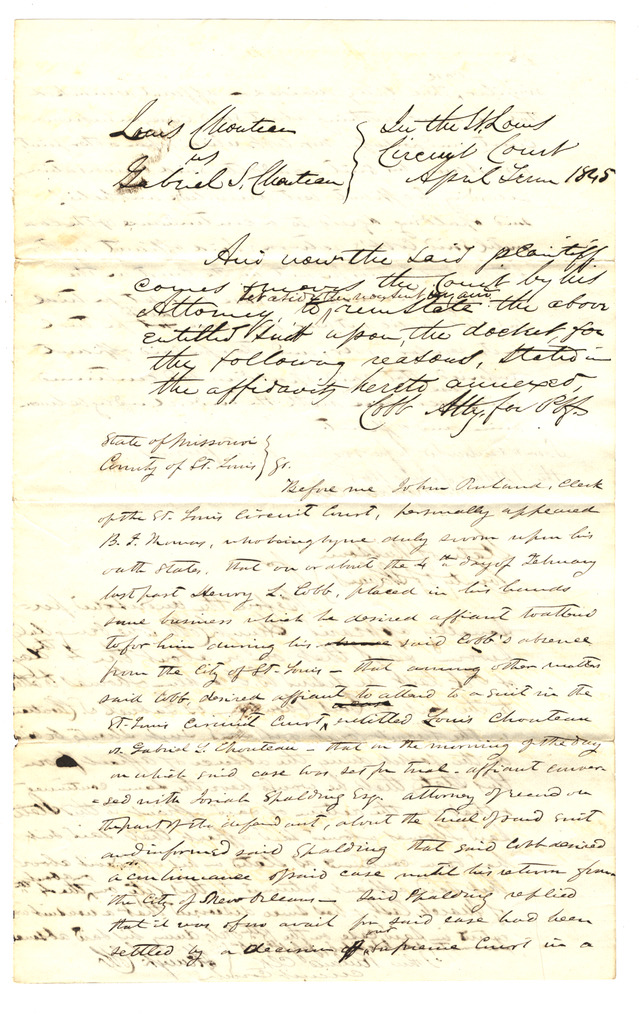 Louis Chouteau
vs
Gabriel S. Chouteau
In the St. Louis
Circuit Court
April Term 1845
And now the said plaintiff
comes moves the Court by his
Attorney, to set aside the nonsuit and reinstate the above
entitled Suit upon the docket, for
the following reasons, stated in
the affidavit hereto annexed,
Cobb Atty. for Plff.
State of Missouri
County of St. Louis
Before me John Ruland, Clerk
of the St. Louis Circuit Court, personally appeared
B. F. who being by me duly sworn upon his
oath states, that on or about the 4th day of February
last past Henry L. Cobb, placed in his hands
some business which he desired affiant to attend
to for him during his said Cobb's absence
from the City of St. Louis – that among other matters
said Cobb, desired affiant to attend to a suit in the
St. Louis Circuit Court, entitled Louis Chouteau
vs. Gabriel S. Chouteau – that on the morning of the day
on which said case was set for trial – affiant conver
=sed with Josiah Spalding Esq. attorney of record on
the part of the defendant, about the trial of said suit
and informed said Spalding that said Cobb desired
a continuance of said case until his return from
the City of New Orleans – said Spalding replied
that it was of no avail for said case had been
settled by a decision of our Supreme Court in a